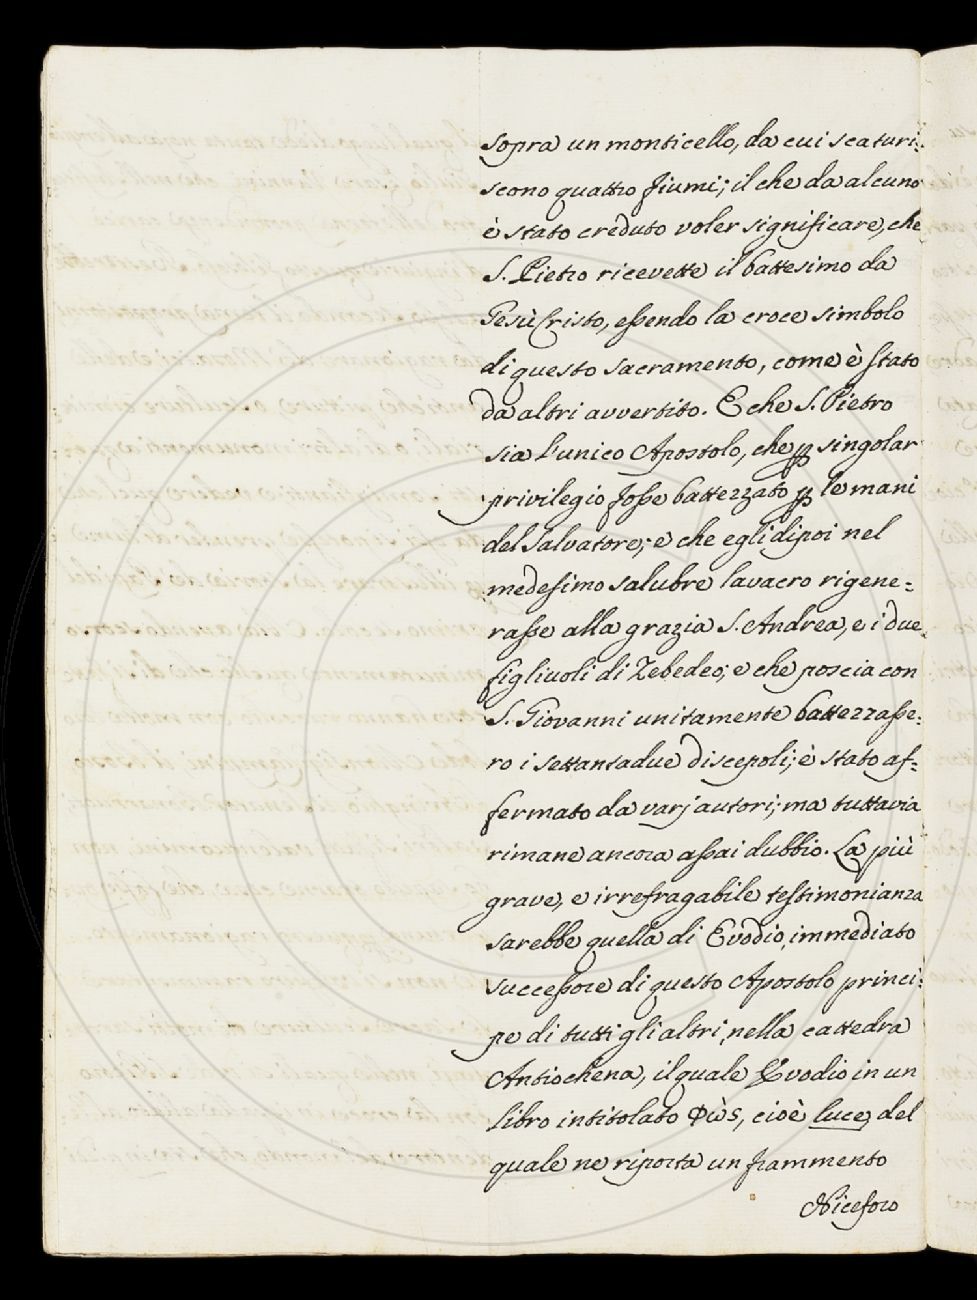 sopra un monticello, da cui scaturi:
scono quattro fiumi; il che da alcuno
è stato creduto voler significare, che
S. Pietro ricevette il battesimo da
Gesù Cristo, essendo la croce simbolo
di questo sacramento, come è stato
da altri avvertito. E che S. Pietro
sia l'unico Apostolo, che ꝑ singolar
privilegio fosse battezzato ꝑ le mani
del Salvatore; e che egli dipoi nel
medesimo salubre lavacro rigene=
rasse alla grazia S. Andrea, e i due
figliuoli di Zebedeo; e che poscia con
S. Giovanni unitamente battezzasse:
ro i settantadue discepoli; è stato af=
fermato da varj autori; ma tuttavia
rimane ancora assai dubbio. La più
grave, e irrefragabile testimonianza
sarebbe quella di Evodio, immediato
successore di questo Apostolo princi:
pe di tutti gli altri, nella cattedra
Antiochena, il quale Evodio in un
libro intitolato Φὼς, cioè luce, del
quale ne riporta un frammento
Niceforo